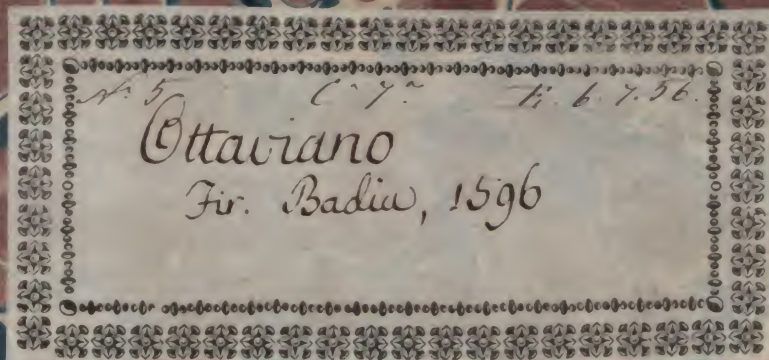 N. 5 C. 7. K. 6. 7. 56.
Ottaviano
Fir. Badia, 1596